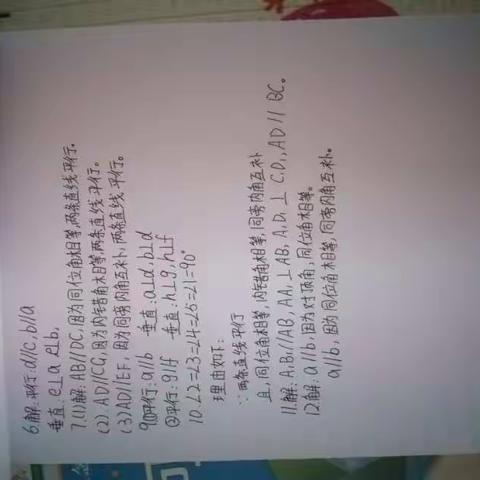 6.解:平行:d//c,b//a
垂直:e⊥a e⊥b,
7.(1)解:AB//DC,因为同位角相等,两条直线平行。
(2).AD//CG,因为内错角相等,两条直线平行。
(3)AD//EF,因为同旁内角互补,两条直线平行。
9①平行:a//b 垂直:a⊥d,b⊥d
②平行:g//f 垂直:h⊥g,h⊥f
10.∠2=∠3=∠4=∠5=∠1=90°
理由如下:
∵两条直线平行
且,同位角相等,内错角相等,同旁内角互补
11.解:A₁B₁//AB,AA₁⊥AB,A₁D₁⊥C₁D₁,AD//BC。
12.解:a//b,因为对顶角,同位角相等。
a//b,因为同位角相等,同旁内角互补。